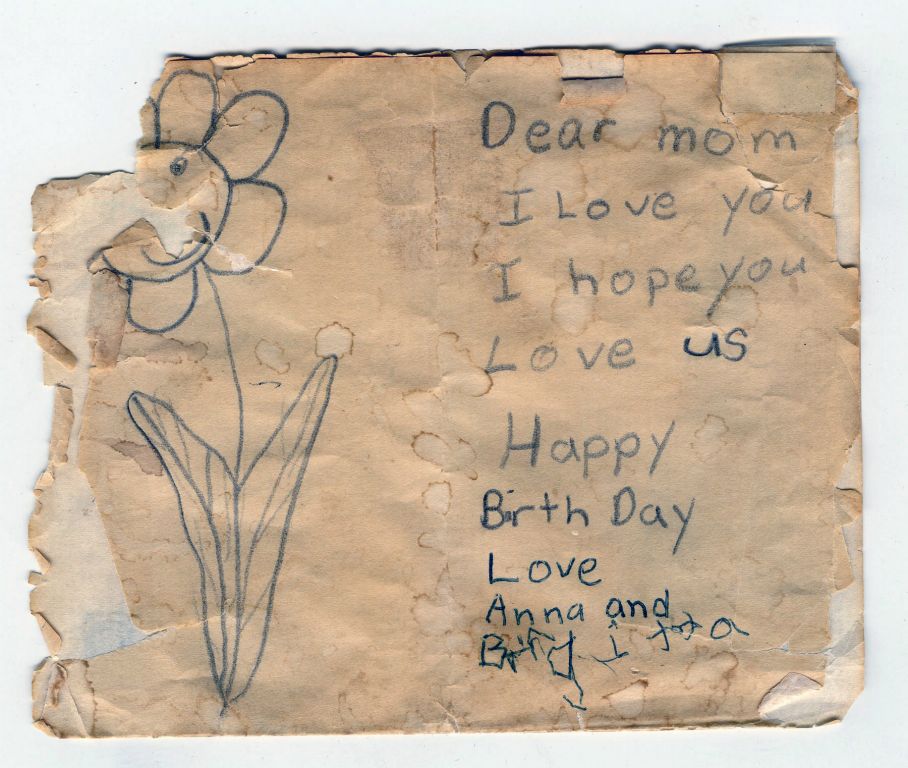 Dear mom
I Love you
I hope you
Love us
Happy
Birth Day
Love
Anna and